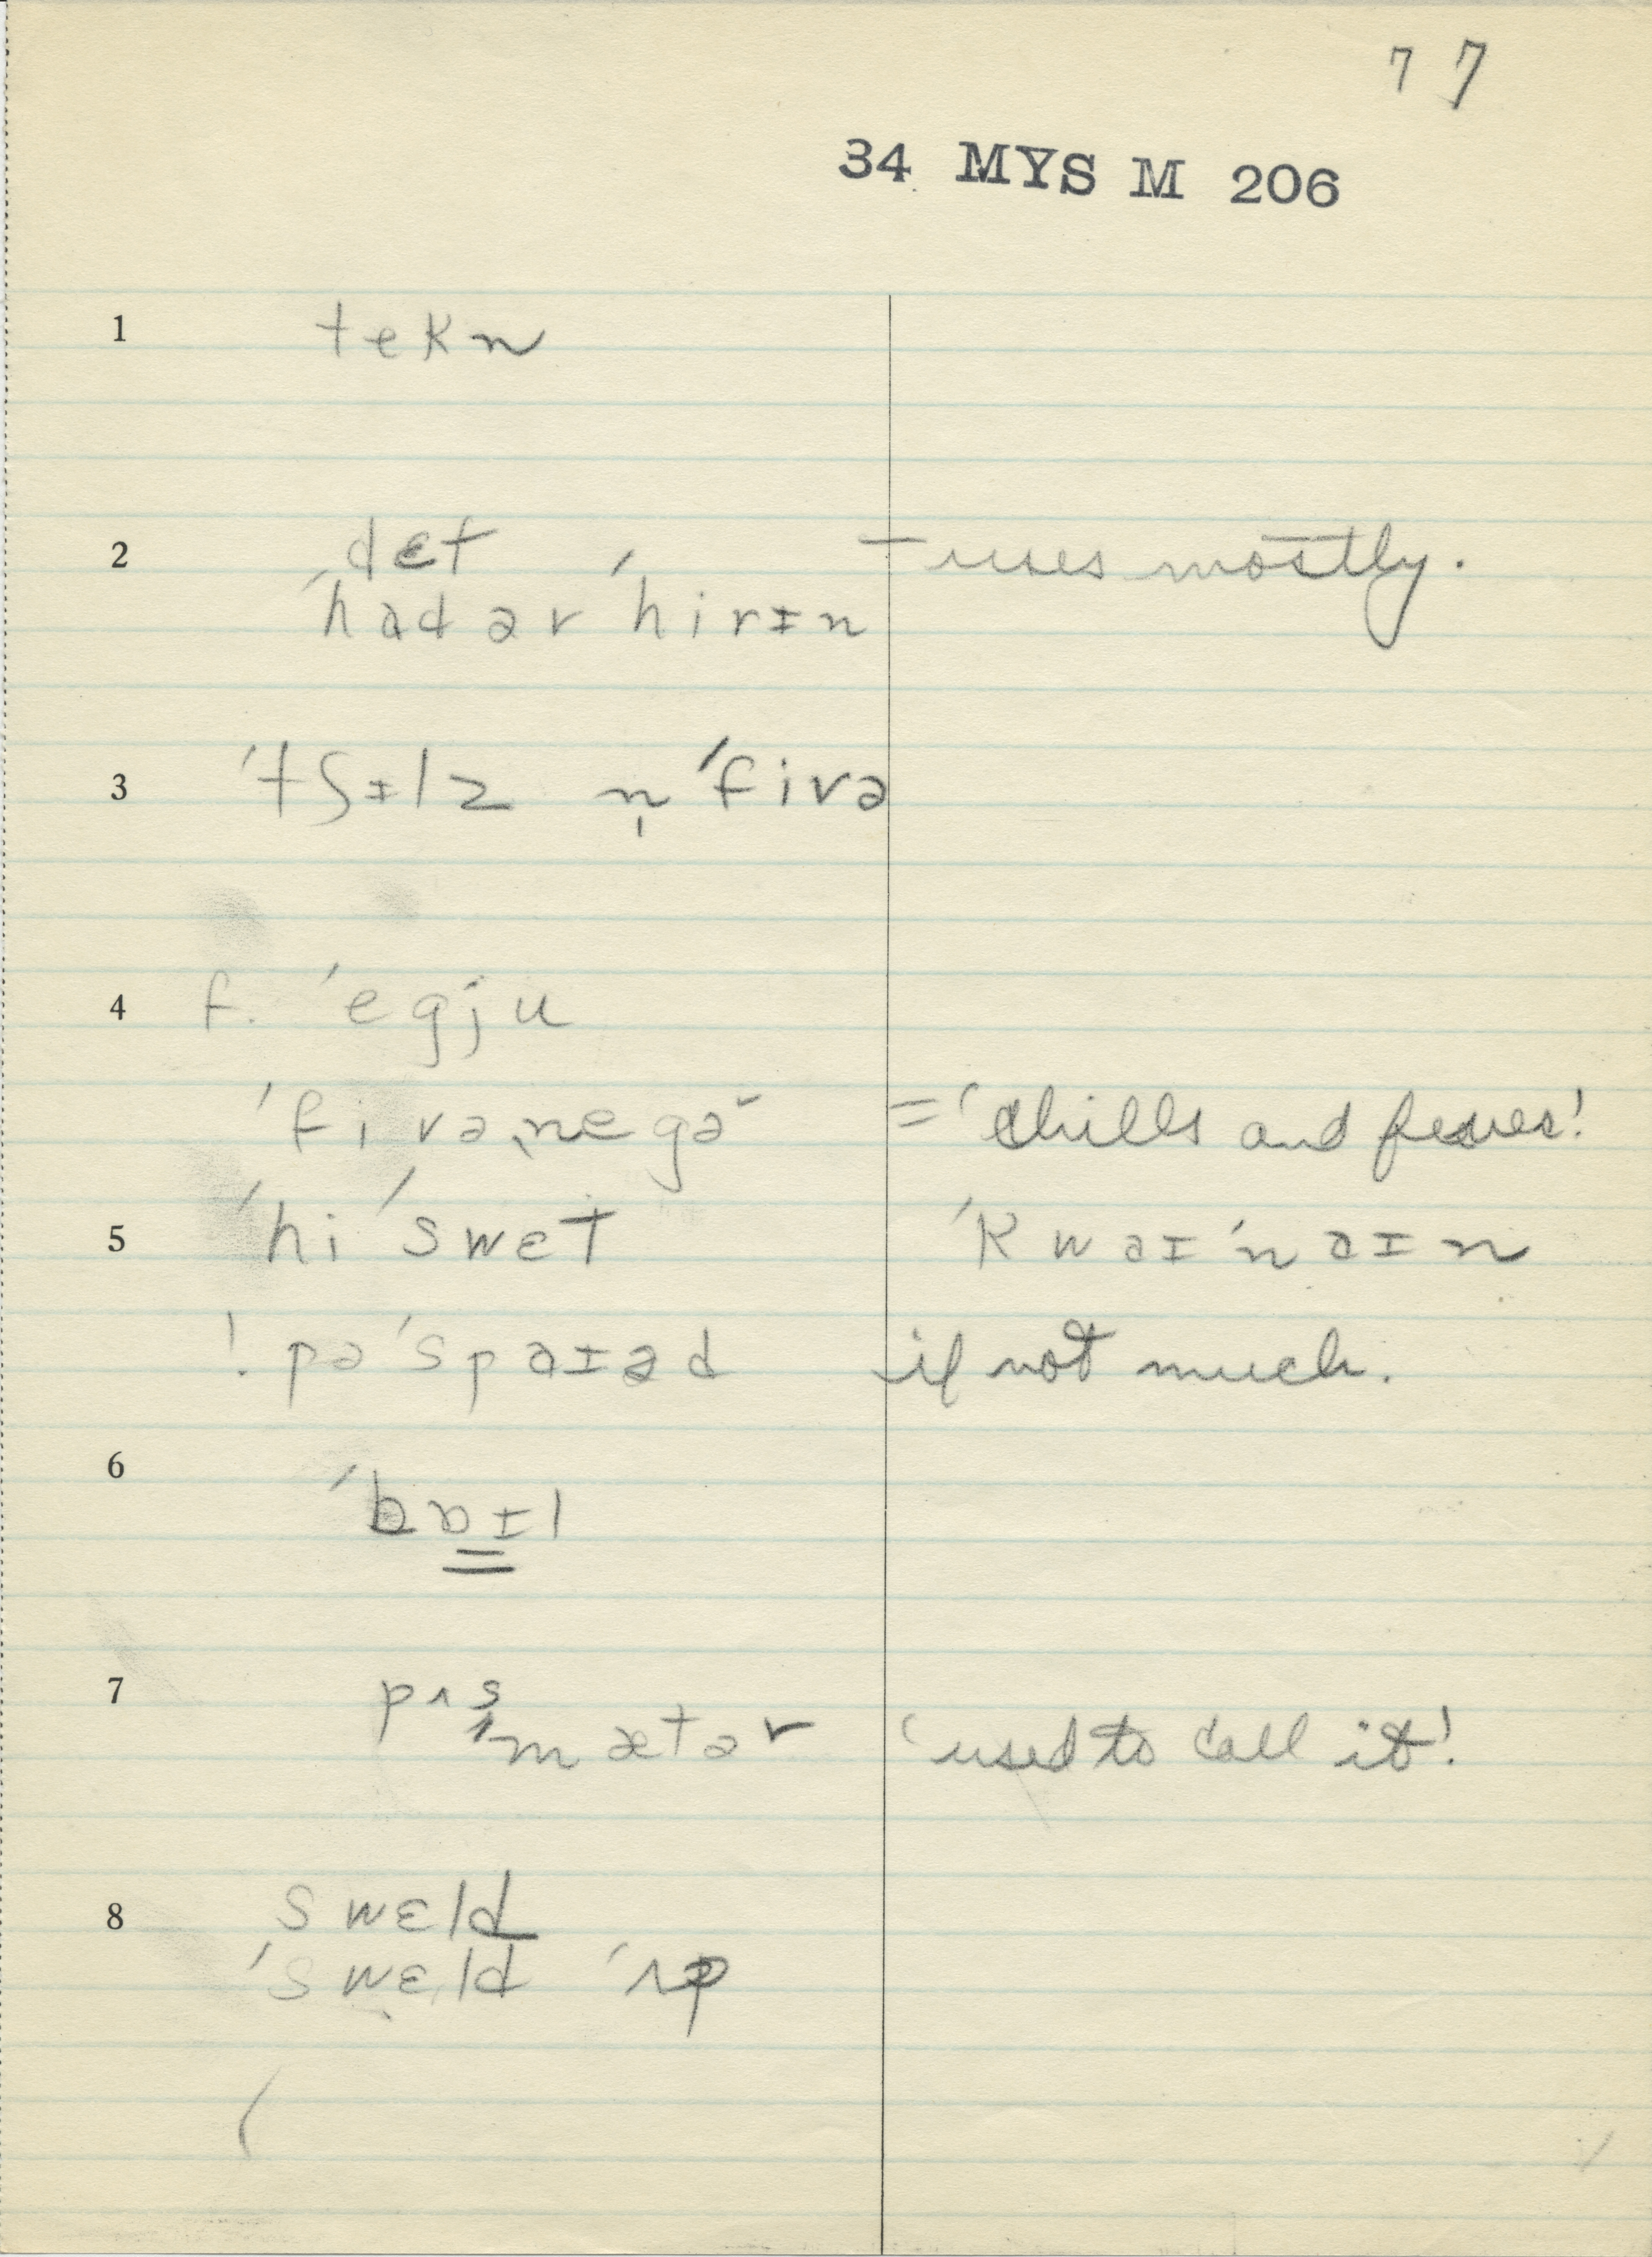 7 7
34 MYS M 206
1 tekn
2 dɛt — uses mostly.
ˈhadər ˈhirɪn
3 ˈtʃɪlz n̩ ˈfivə
4 f. ˈegju
ˈfivəˌnegə = ‘chills and fever’.
5 ˈhi ˈswɛt ˈkwaɪˈnaɪn
! pəˈspaɪəd if not much.
6 ˈbɒɪl
7 pʌs
ˈmætər ‘used to call it’.
8 swɛld
ˈswɛld ˈʌp